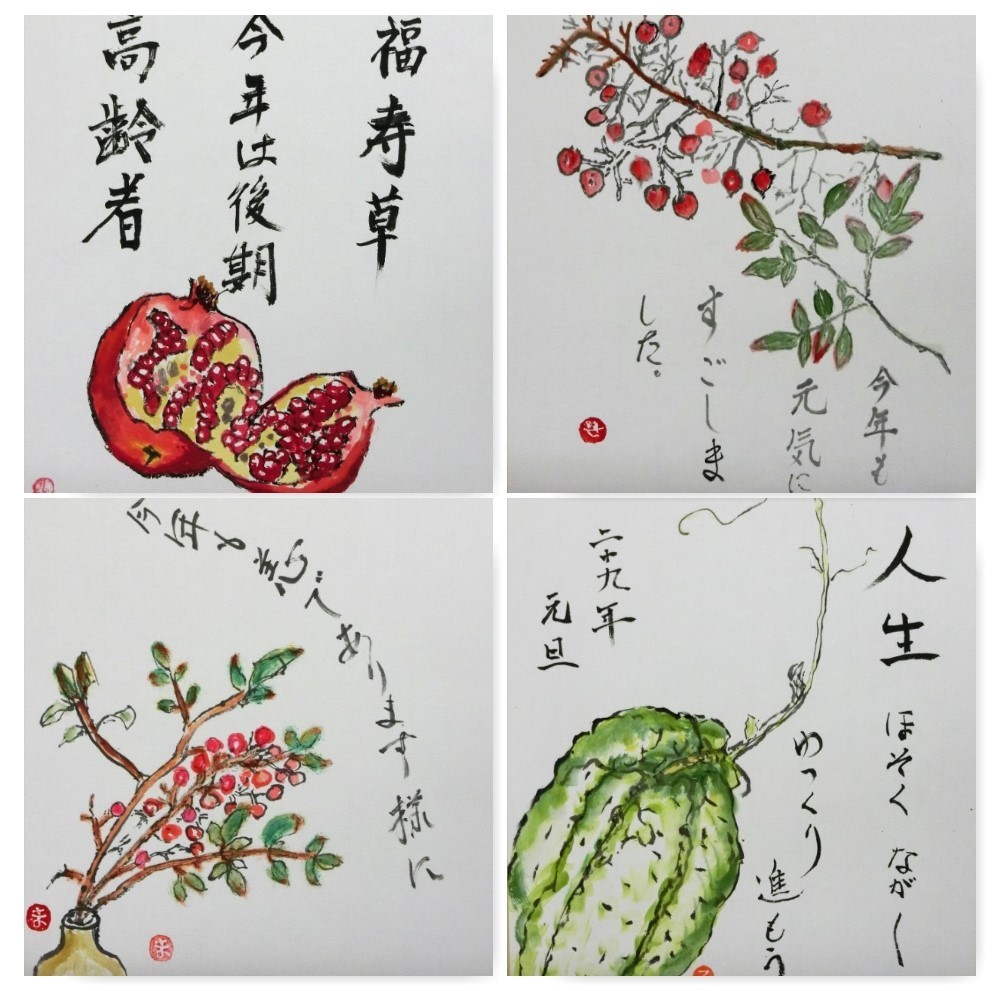 福寿草
今年は後期
高齢者
今年も
元気に
すごしま
した。
今年も
でありますように様に
人生 ほそく ながく
ゆっくり 進もう
二十九年
元旦